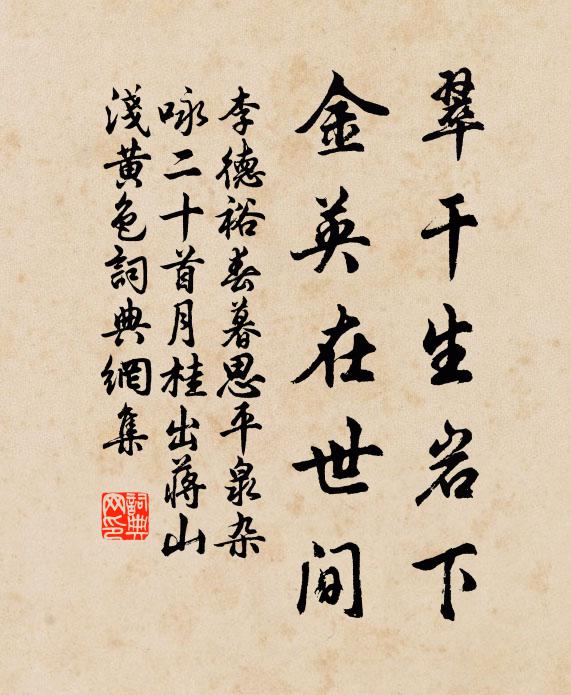 翠干生岩下
金英在世间
李德裕春暮思平泉杂
咏二十首月桂出蒋山
淺黄色詞典網集
詞典
网印